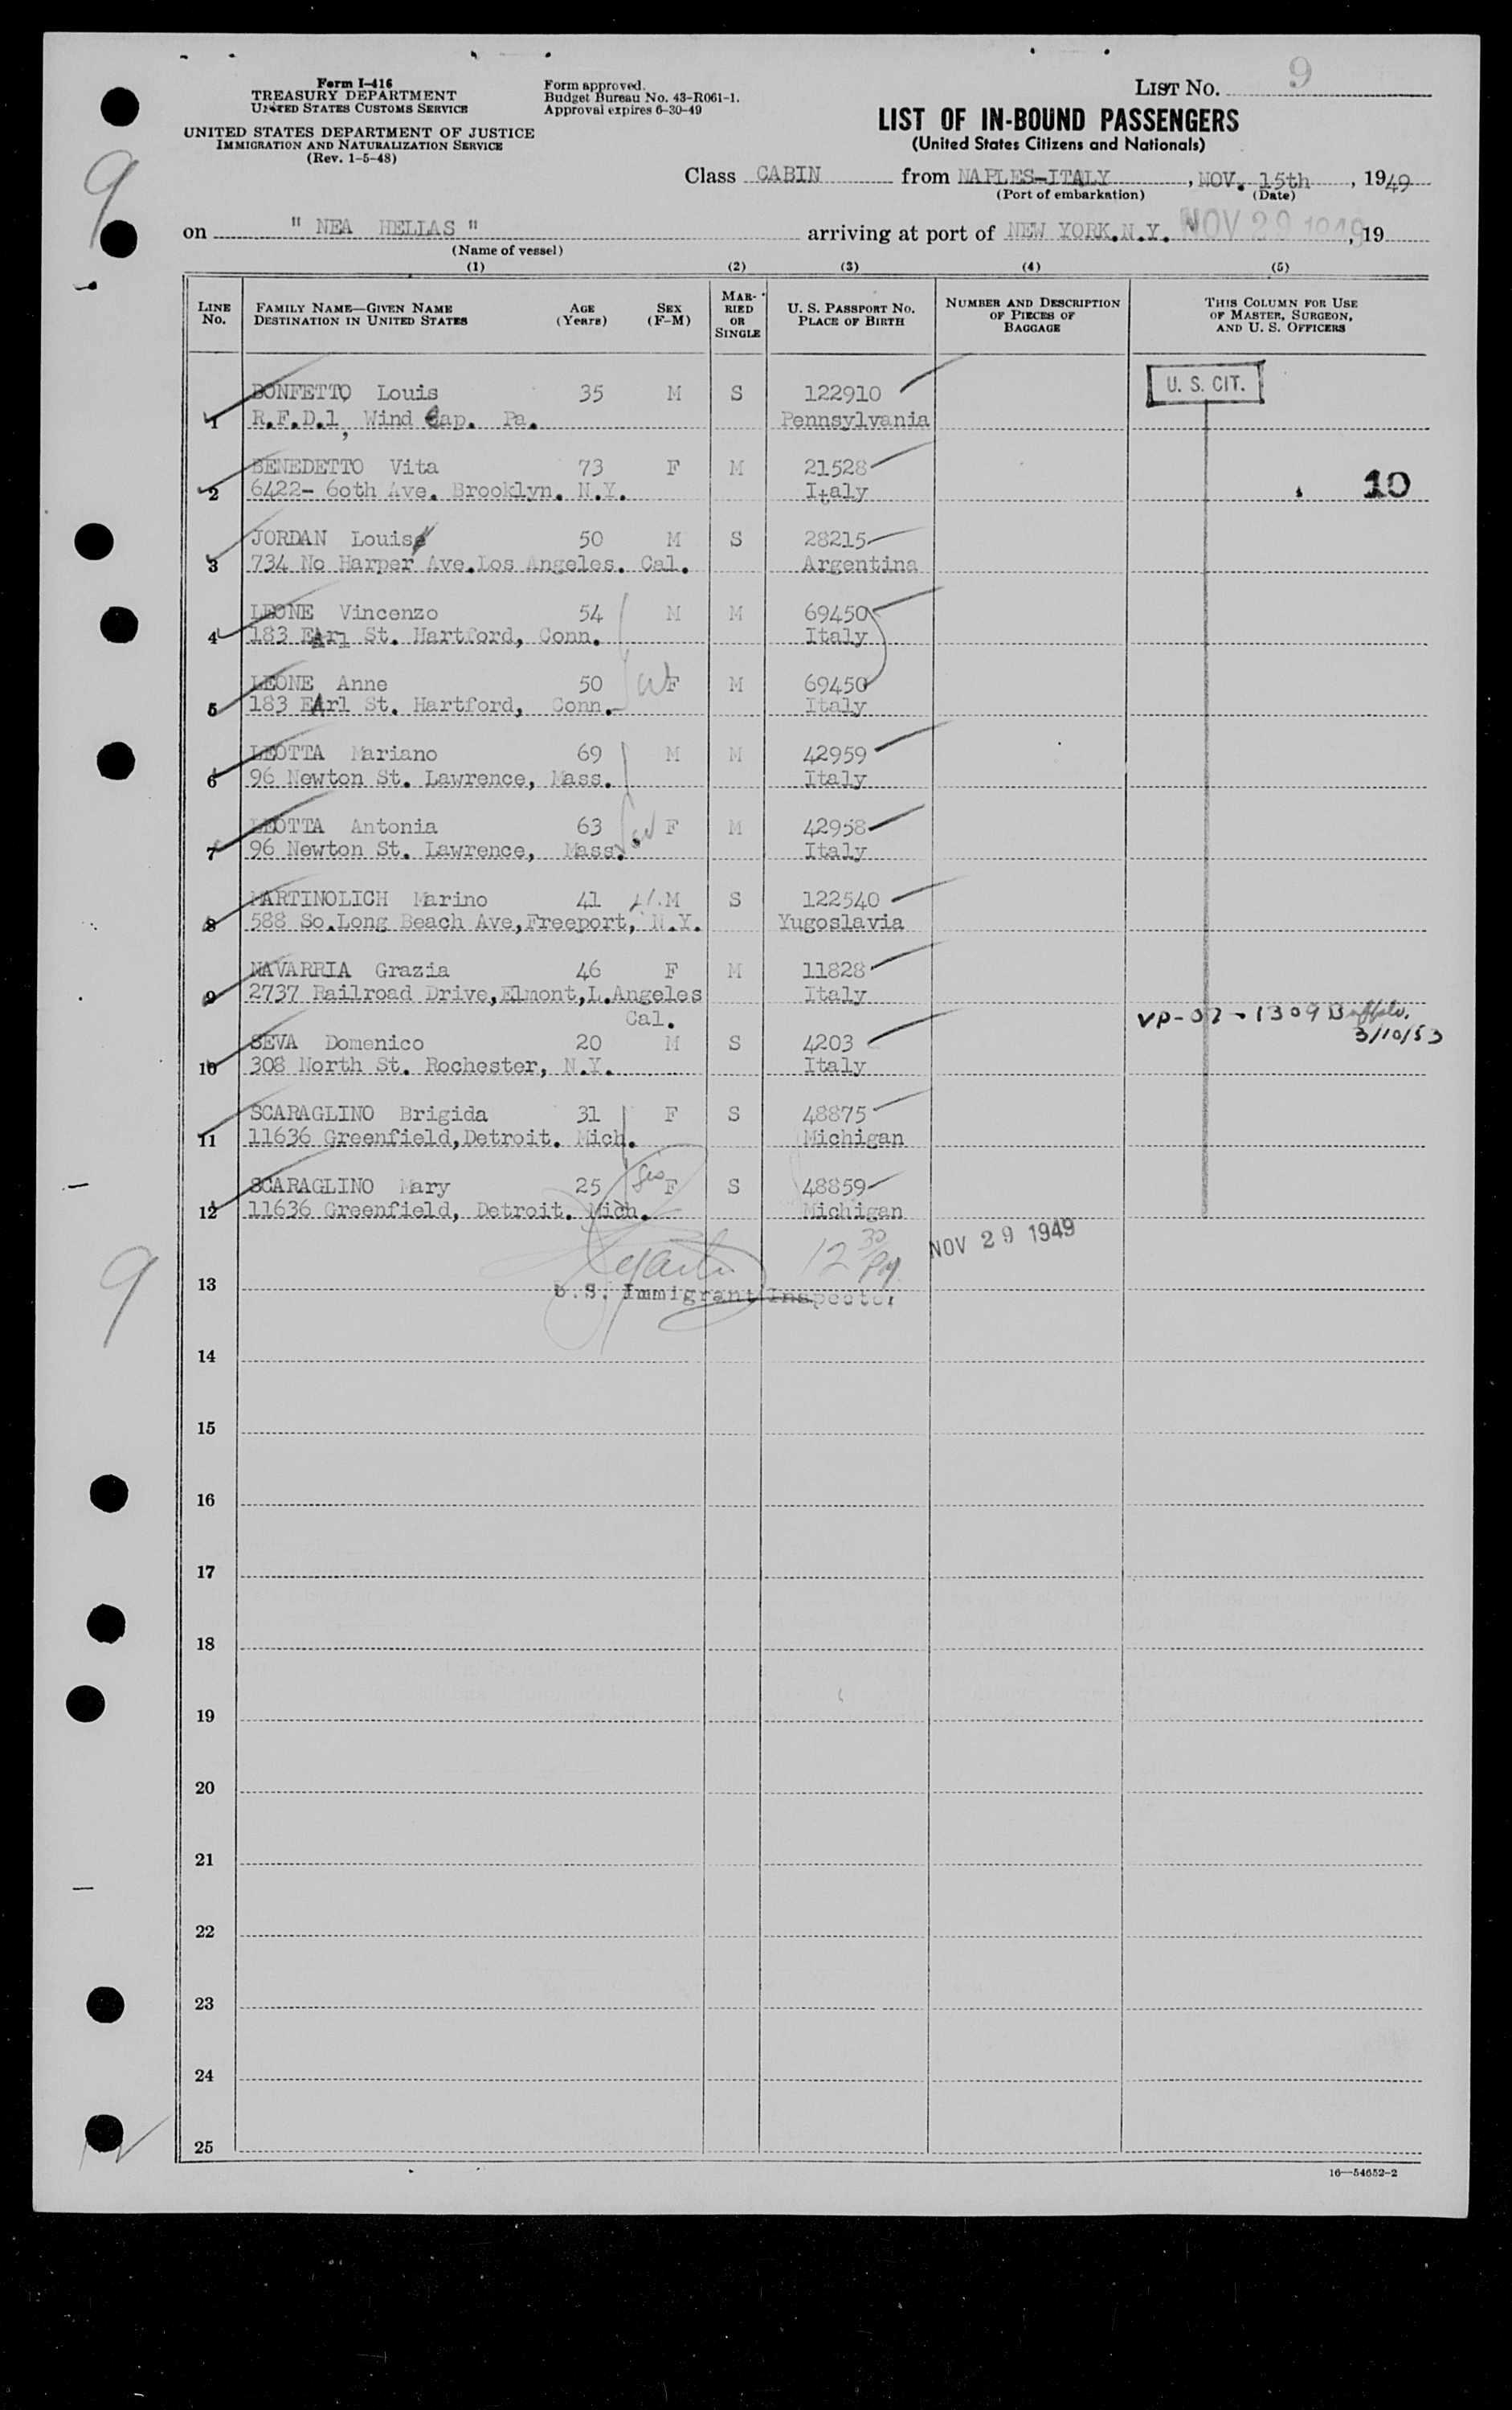 Form I-416
TREASURY DEPARTMENT
UNITED STATES CUSTOMS SERVICE
UNITED STATES DEPARTMENT OF JUSTICE
IMMIGRATION AND NATURALIZATION SERVICE
(Rev. 1-5-48)
Form approved.
Budget Bureau No. 43-R061-1.
Approval expires 6-30-49
LIST No. 9
LIST OF IN-BOUND PASSENGERS
(United States Citizens and Nationals)
Class CABIN from NAPLES-ITALY, NOV. 15th, 1949
(Port of embarkation) (Date)
on " NEA HELLAS " arriving at port of NEW YORK.N.Y. NOV 29 1949, 19
(Name of vessel)
(1) (2) (3) (4) (5)
LINE No. FAMILY NAME—GIVEN NAME DESTINATION IN UNITED STATES AGE (Years) SEX (F-M) MARRIED OR SINGLE U. S. PASSPORT No. PLACE OF BIRTH NUMBER AND DESCRIPTION OF PIECES OF BAGGAGE THIS COLUMN FOR USE OF MASTER, SURGEON, AND U. S. OFFICERS
BONFETTO Louis 35 M S 122910 U. S. CIT.
1 R.F.D.1, Wind Gap. Pa. Pennsylvania
BENEDETTO Vita 73 F M 21528
2 6422- 60th Ave. Brooklyn. N.Y. Italy 10
JORDAN Louis 50 M S 28215
3 734 No Harper Ave.Los Angeles. Cal. Argentina
LEONE Vincenzo 54 M M 69450
4 183 EArl St. Hartford, Conn. Italy
LEONE Anne 50 W F M 69450
5 183 EArl St. Hartford, Conn. Italy
LEOTTA Mariano 69 M M 42959
6 96 Newton St. Lawrence, Mass. Italy
LEOTTA Antonia 63 W F M 42958
7 96 Newton St. Lawrence, Mass. Italy
MARTINOLICH Marino 41 M S 122540
8 588 So.Long Beach Ave,Freeport, N.Y. Yugoslavia
NAVARRIA Grazia 46 F M 11828
9 2737 Railroad Drive,Elmont,L.Angeles Italy
Cal. VP-02-1309 Buffalo.
SEVA Domenico 20 M S 4203 3/10/53
10 308 North St. Rochester, N.Y. Italy
SCARAGLINO Brigida 31 F S 48875
11 11636 Greenfield,Detroit. Mich. Michigan
SCARAGLINO Mary 25 Sis F S 48859
12 11636 Greenfield, Detroit. Mich. Michigan
12 30 PM NOV 29 1949
13 U.S. Immigrant Inspector
14
15
16
17
18
19
20
21
22
23
24
25
16—54652-2
9
9